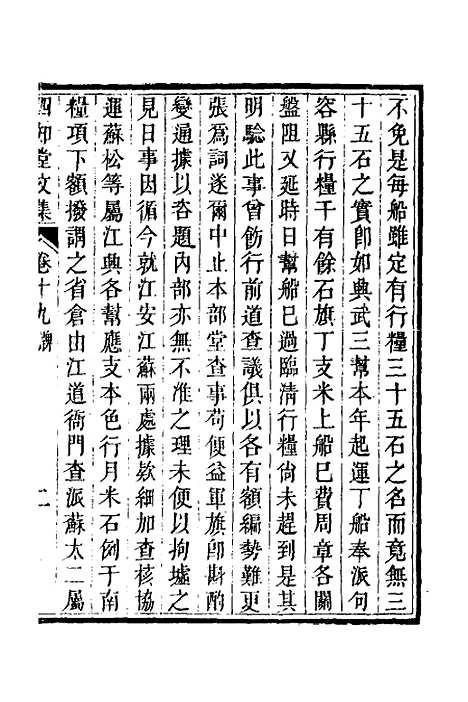 不免是每船雖定有行糧三十五石之名而竟無三
十五石之實卽如典武三幫本年起運丁船奉派句
容縣行糧千有餘石旗丁支米上船已費周章各關
盤阻又延時日幫船已過臨清行糧尙未趕到是其
明驗此事曾飭行前道查議俱以各有額編勢難更
張爲詞遂爾中止本部堂查事苟便益軍旗卽斟酌
變通據以咨題內部亦無不准之理未便以拘墟之
見日事因循今就江安江蘇兩處據欵細加查核協
運蘇松等屬江興各幫應支本色行月米石例于南
糧項下額撥謂之省倉由江道衙門查派蘇太二屬
四知堂文集
卷十九牌
二